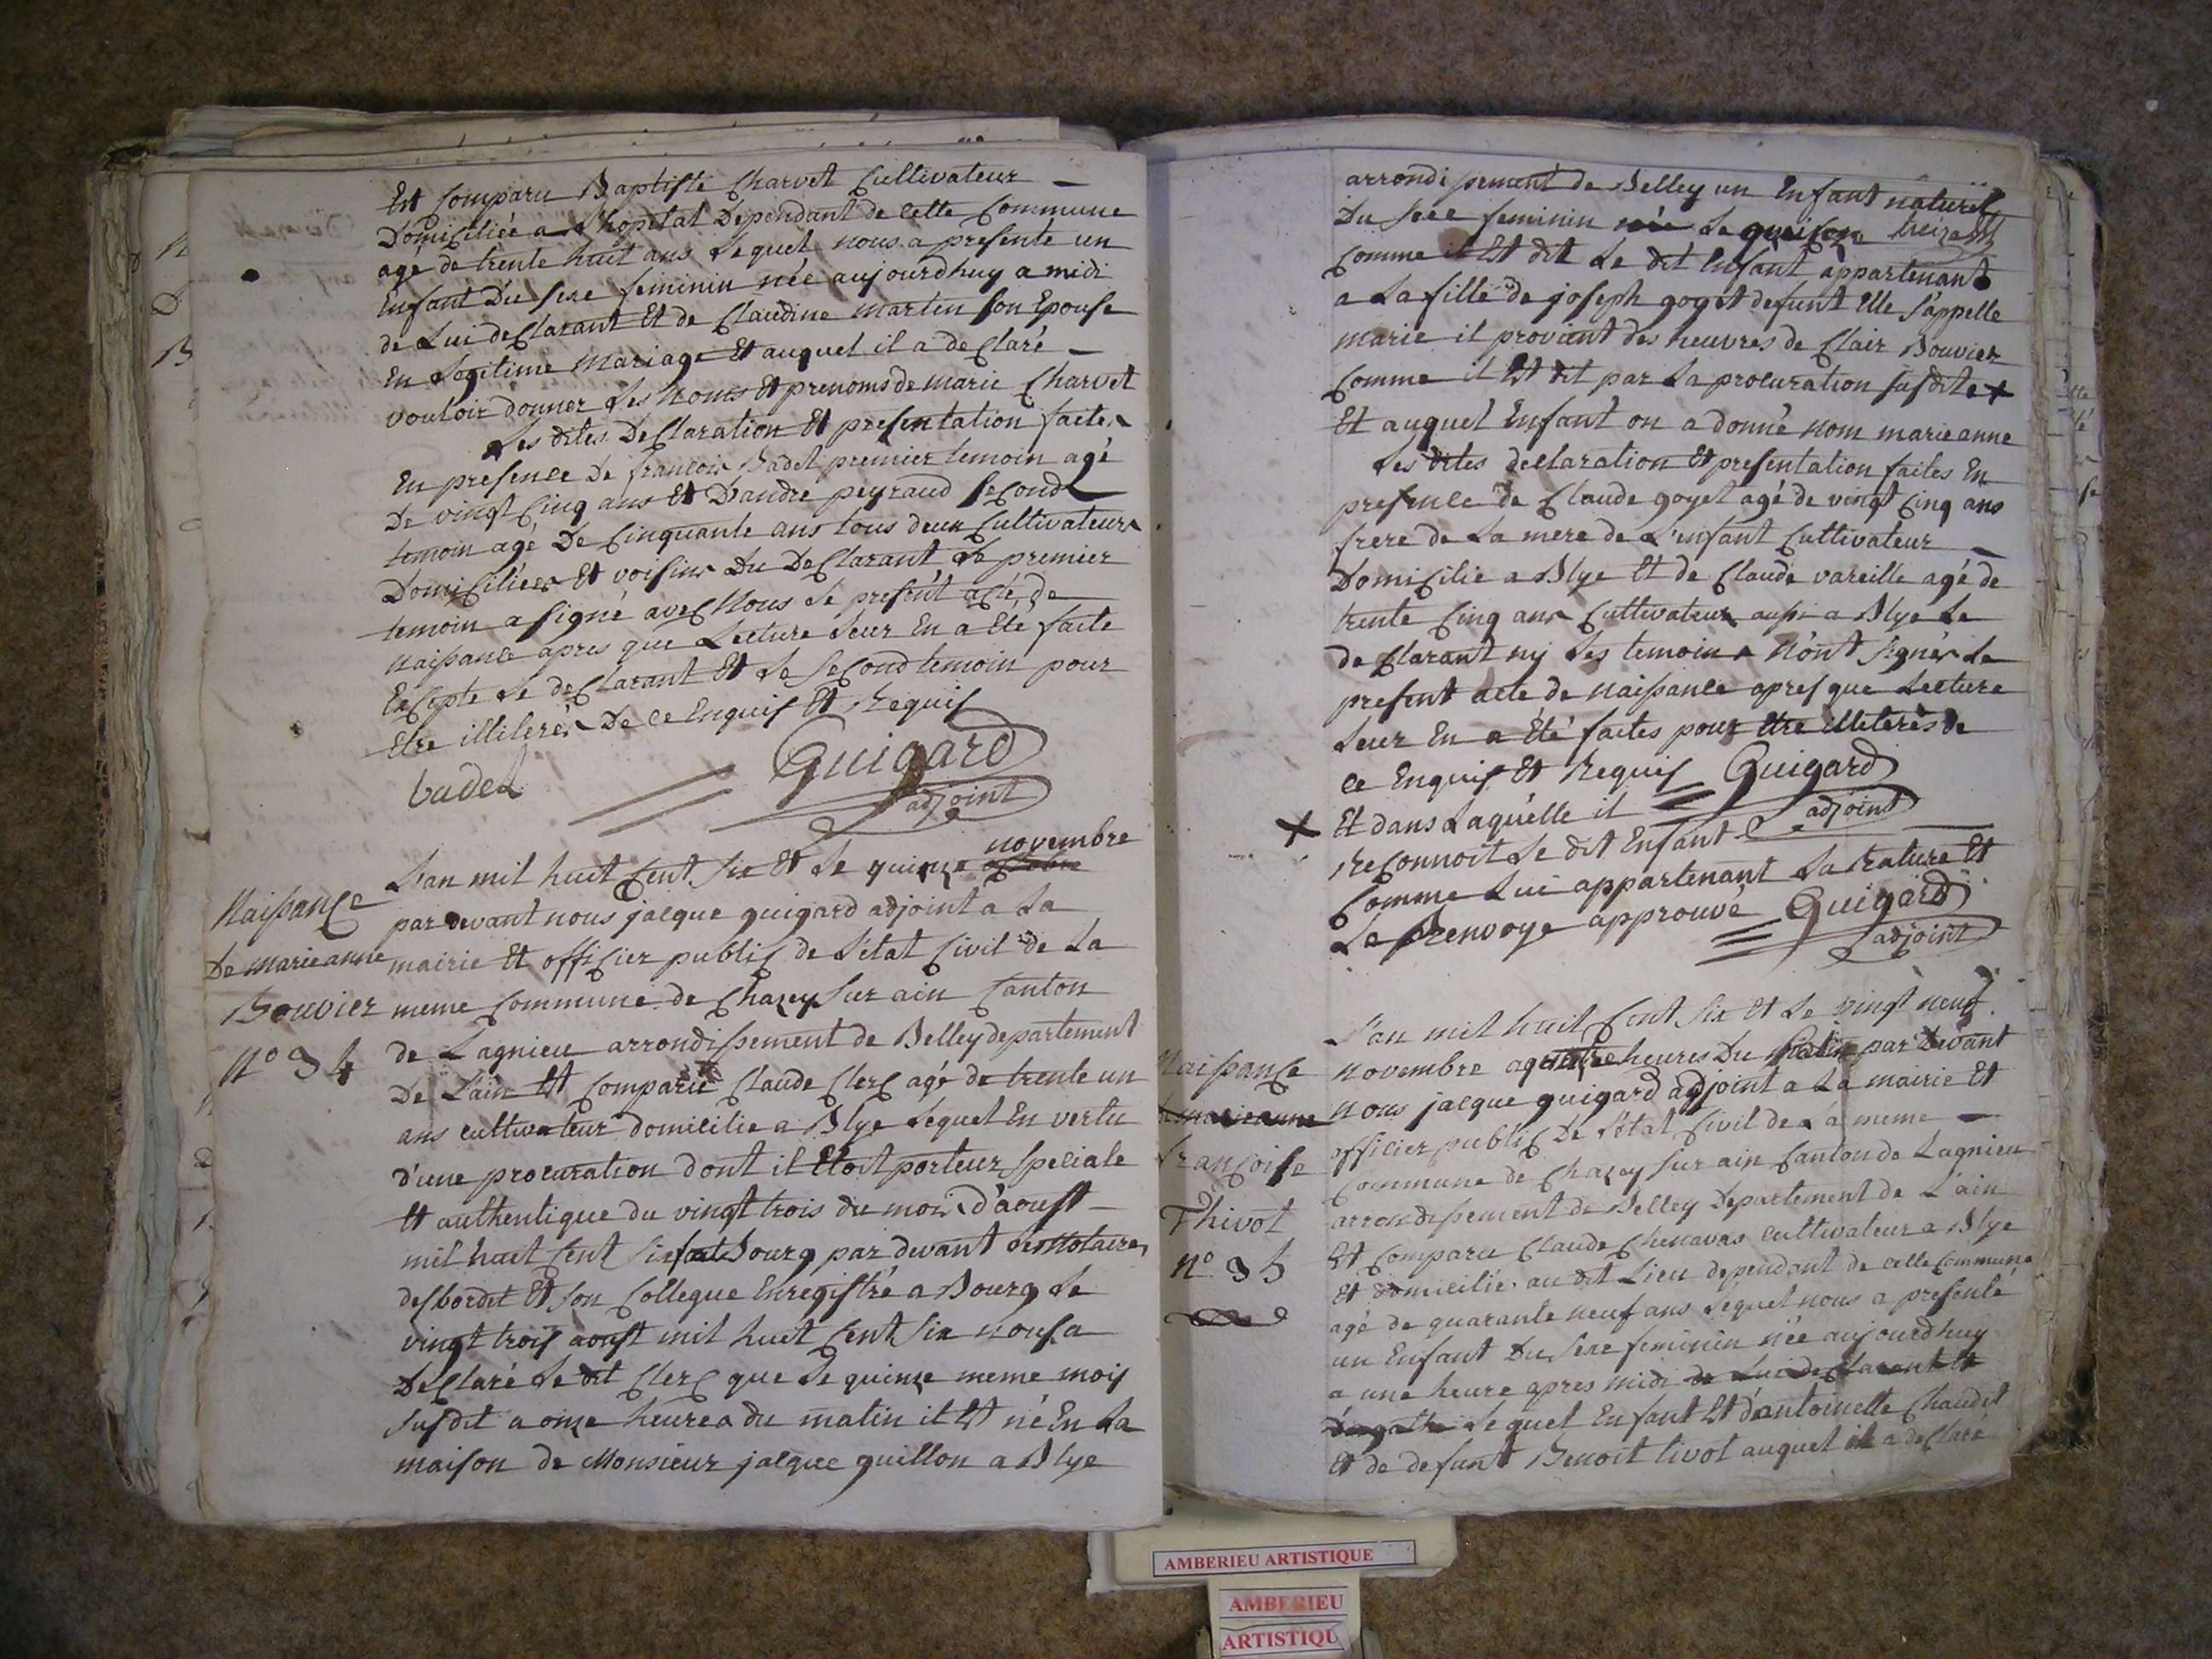 Est comparu Baptiste Charvet Cultivateur
Domiciliée a L'hopital Dependant de Cette Commune
agé de trente huit ans Lequel nous a presenté un
Enfant Du sexe feminin née aujourdhuy a midi
de Lui deClarant Et de Claudine martin son Epouse
En Legitime Mariage Et auquel il a deClaré
vouloir donner Les Noms Et prenoms de marie Charvet
Les dites DeClaration Et presentation faites
En presence De francois Badet premier temoin agé
De vingt Cinq ans Et Dandre peyraud second
temoin agé De Cinquante ans tous deux Cultivateurs
Domiciliées Et voisins Du DeClarant Le premier
temoin a signé avec Nous Le present acte de
Naissance apres que Lecture Leur En a Eté faite
Excepte Le deClarant Et Le second temoin pour
Etre illiterés De ce Enquis Et Requis
badet Guigard
adjoint
novembre
L'an mil huit Cent six Et Le quinze
Naissance
par devant nous jacque guigard adjoint a La
De marieanne
mairie Et officier public de L'état Civil de La
Bouvier
meme Commune de Chazey sur ain Canton
N° 34
de Lagnieu arrondissement de Belley departement
De L'ain Est Comparu Claude Clerc agé de trente un
ans cultivateur domicilie a Blye Lequel En vertu
d'une procuration dont il Etoit porteur speciale
Et authentique du vingt trois du mois d'aoust
mil huit Cent six fait Bourg par devant Les Notaires
desbordet Et son Collegue Enregistré a Bourg Le
vingt trois aoust mil huit Cent six nous a
DeClaré Le dit Clerc que Le quinze meme mois
susdit a onze heures du matin il Est né En La
maison de Monsieur jacque guillon a Blye
arrondissement de Belley un Enfant naturel
Du sexe feminin née Le
comme il Est dit Le dit Enfant appartenant
a La fille de joseph goyet defunt Elle s'appelle
marie il provient des heuvres de Clair Bouvier
Comme il Est dit par La procuration susdite +
Et auquel Enfant on a donné nom marieanne
Les dites declaration Et presentation faites En
presence de Claude goyet agé de vingt Cinq ans
frere de La mere de L'enfant Cultivateur
Domicilie a Blye Et de Claude vareille agé de
trente Cinq ans Cultivateur aussi a Blye Le
deClarant ny Les temoins N'ont signés Le
present acte de naissance apres que Lecture
Leur En a Eté faites pour Etre illeterés de
ce Enquis Et Requis Guigard
adjoint
+ Et dans Laquelle il
Reconnoit Le dit Enfant
Comme Lui appartenant La rature Et
Le Renvoye approuvé Guigard
adjoint
L'an mil huit Cent six Et Le vingt neuf
Naissance
novembre a quatre heures Du par devant
de marieanne
Nous jacque guigard adjoint a La mairie Et
officier public De L'état Civil de La meme
francoise
Commune de Chazey sur ain Canton de Lagnieu
Thivot
arrondissement de Belley Departement de L'ain
N° 35
Est Comparu Claude Chenavas cultivateur a Blye
Et domicilié au dit Lieu dependant de cette Commune
agé de quarante neuf ans Lequel nous a presenté
un Enfant Du sexe feminin née aujourdhuy
a une heure apres midi de Lui deClarant Et
Lequel Enfant Est d'antoinette Chaudet
Et de defunt Benoit tivot auquel il a deClaré
AMBERIEU ARTISTIQUE
AMBERIEU
ARTISTIQU